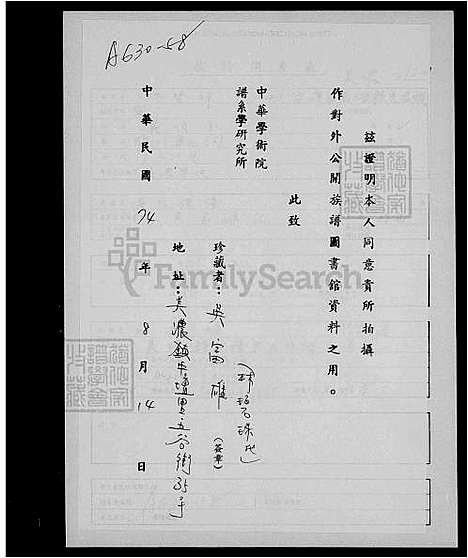 A630-58
茲證明本人同意貴所拍攝
作對外公開族譜圖書館資料之用。
此致
中華學術院
譜系學研究所
珍藏者：吳富雄（簽章）
地址：美濃鎮中壇里五谷街35号
中華民國74年8月14日
FamilySearch